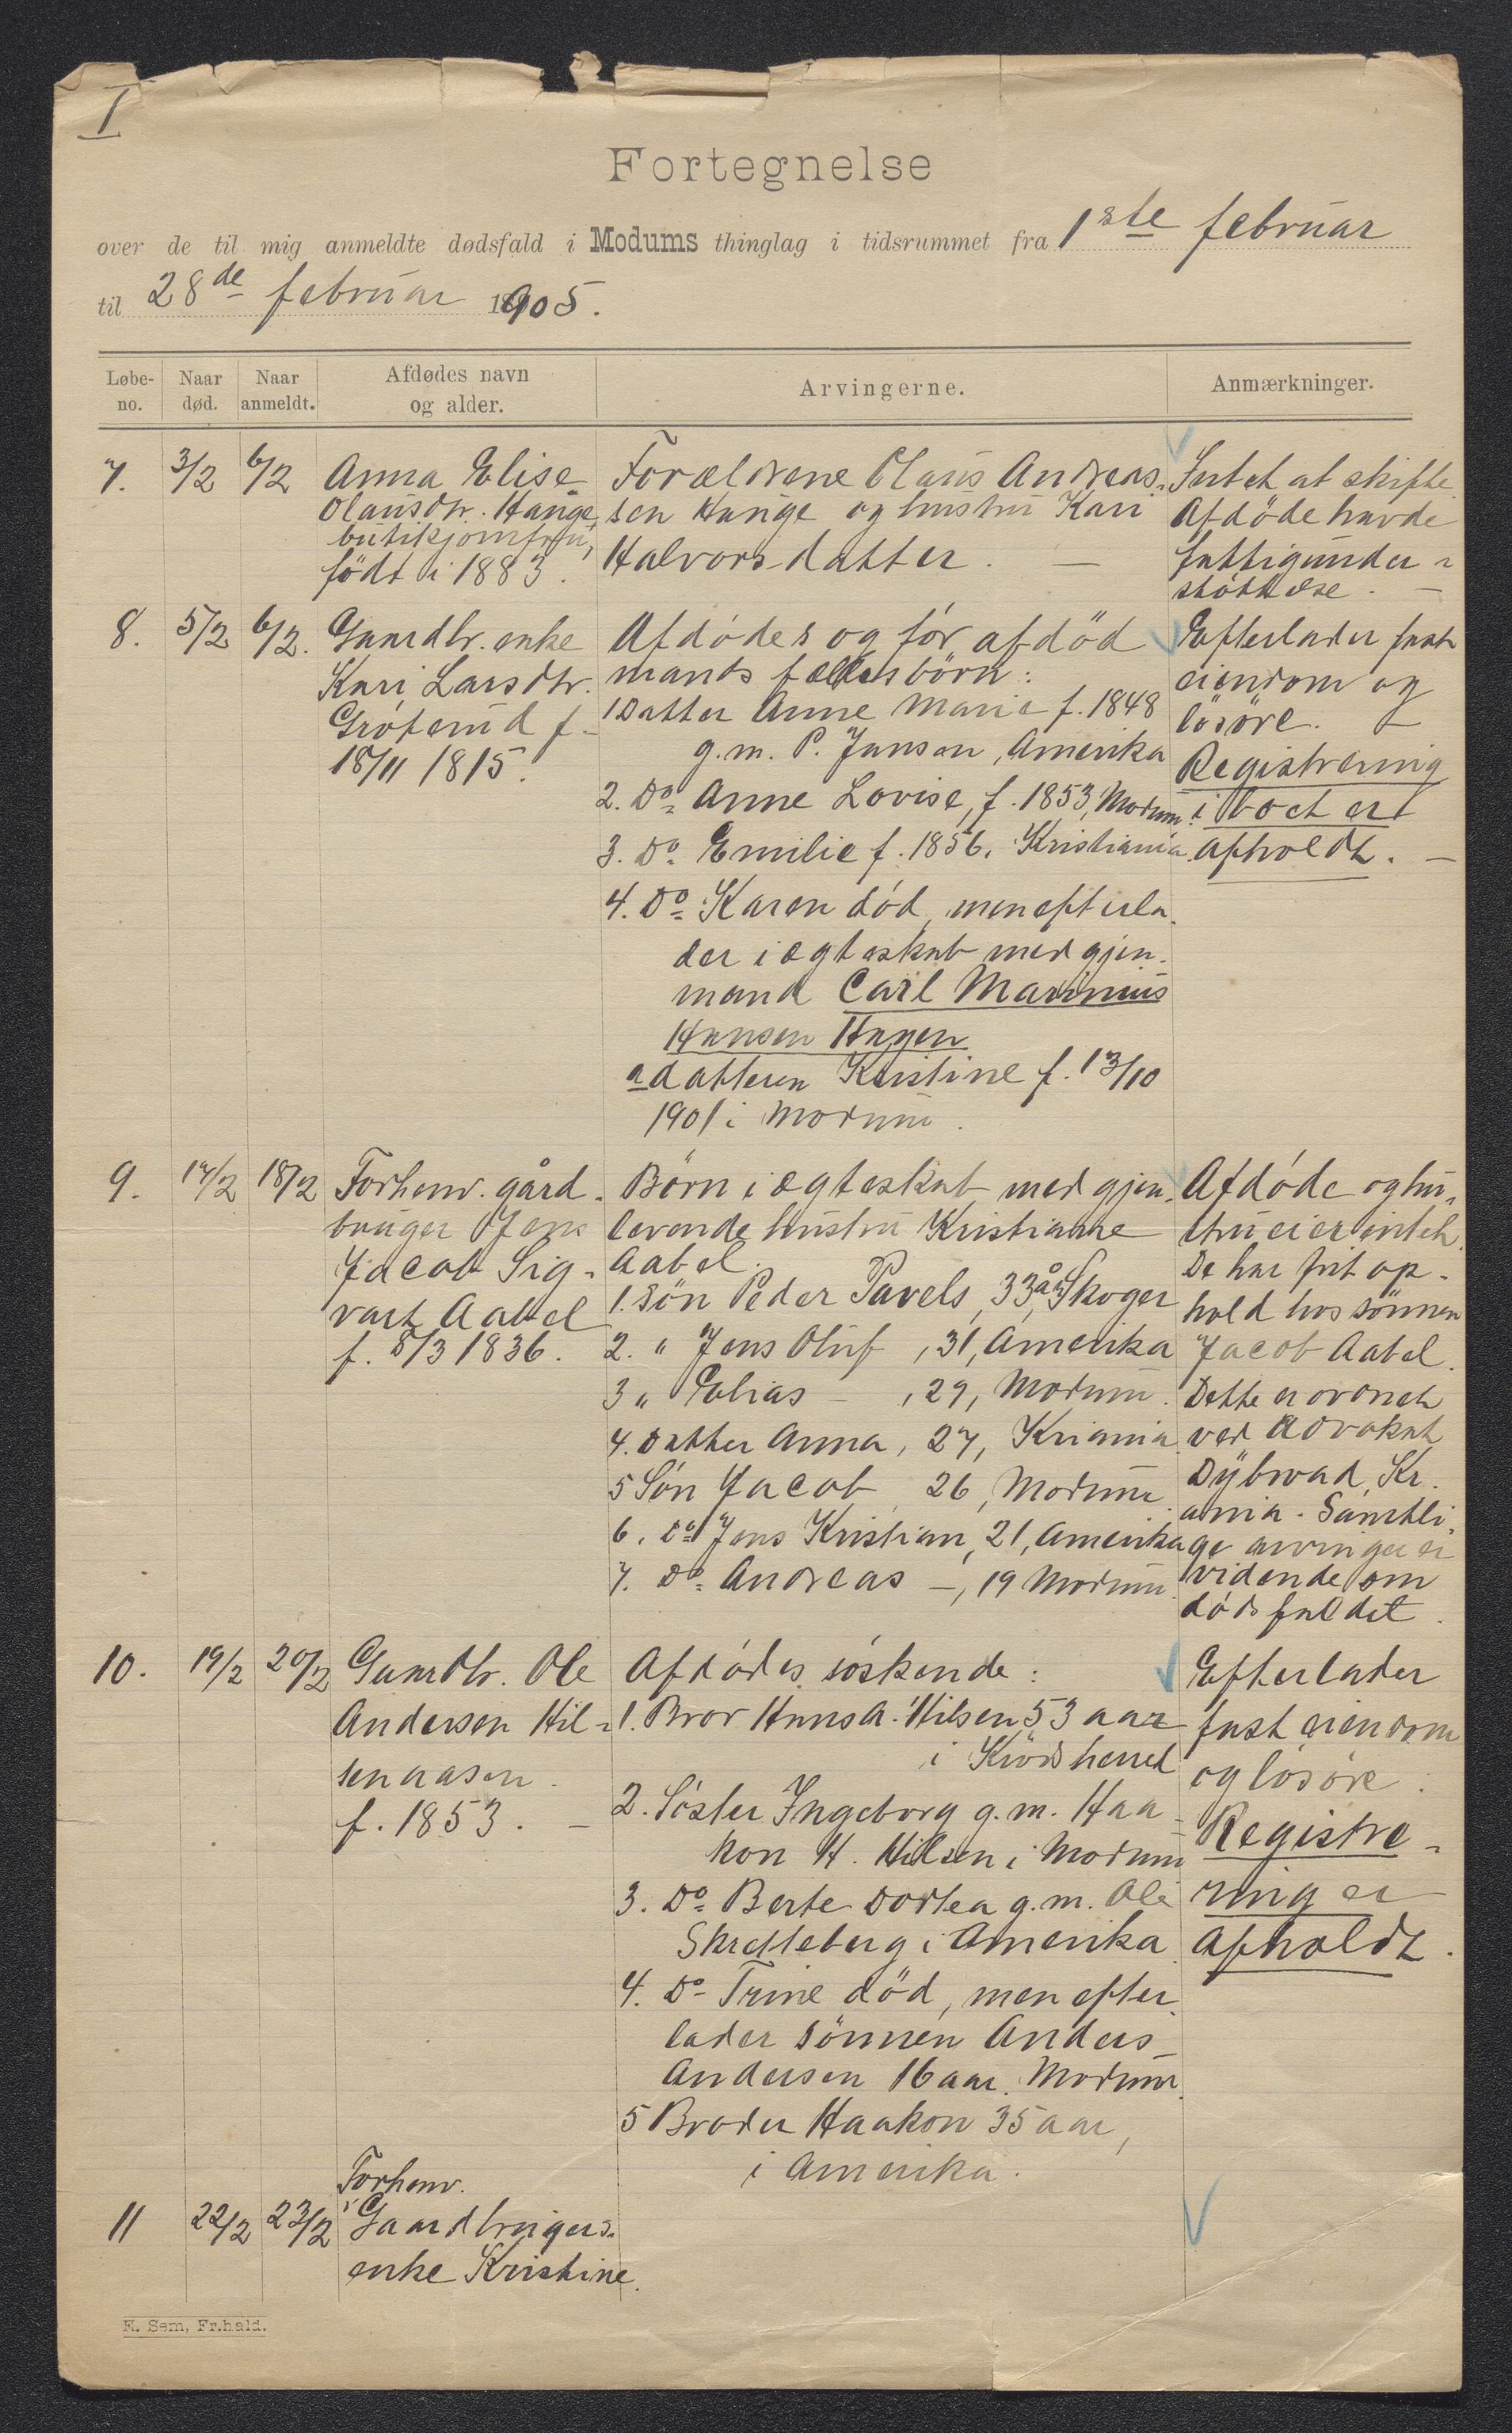 I
Fortegnelse
over de til mig anmeldte dødsfald i Modums thinglag i tidsrummet fra 1ste februar
til 28de februar 1905.
Løbe-no. Naar død. Naar anmeldt. Afdødes navn og alder. Arvingerne. Anmærkninger.
7. 3/2 6/2
Anna Elise
Olausdtr. Hauge,
butikjomfru,
født i 1883.
Forældrene Olaus Andreas-
sen Hauge og hustru Kari
Halvorsdatter. —
Intet at skifte.
Afdøde havde
fattigunder-
støttelse. —
8. 5/2 6/2.
Gaardbr. enke
Kari Larsdtr.
Grøterud f.
18/11 1815.
Afdødes og før afdød
mands fællesbörn:
1 Datter Anne Marie f. 1848
g.m. P. Jansen, Amerika
2. Do Anne Lovise, f. 1853, Modum.
3. Do Emilie f. 1856. Kristiania
4. Do Karen død, men efterla-
der i ægteskab med gjen-
mand Carl Marinius
Hansen Hagen
a datteren Kristine f. 13/10
1901 i Modum.
Efterlader fast
eiendom og
løsøre. —
Registrering
i boet er
afholdt. —
9. 14/2 18/2
Forhenv. gård-
bruger Jens
Jacob Sig-
vart Aabel
f. 8/3 1836.
Börn i ægteskab med gjen-
levende hustru Kristiane
Aabel.
1. Søn Peder Pavels, 33 år, Skoger
2. " Jens Oluf, 31, Amerika
3 " Elias —, 29, Modum.
4. Datter Anna, 27, Kriania.
5 Søn Jacob, 26, Modum.
6. Do Jens Kristian, 21, Amerika
7. Do Andreas —, 19 Modum.
Afdøde og hu-
stru eier intet.
De har frit op-
hold hos sønnen
Jacob Aabel.
Dette er ordnet
ved Advokat
Dybwad, Kr.
ania. Samtli-
ge arvinger er
vidende om
dødsfaldet.
10. 19/2 20/2
Gaardbr. Ole
Andersen Hil-
senaasen.
f. 1853. —
Afdødes søskende:
1. Bror Hans A. Hilsen 53 aar
i Krødsherred
2. Søster Ingeborg g.m. Haa-
kon H. Hilsen i Modum
3. Do Berte Dortea g.m. Ole
Skretteberg i Amerika.
4. Do Trine død, men efter-
lader sønnen Anders
Andersen 16 aar. Modum.
5 Broder Haakon 35 aar,
i Amerika.
Efterlader
fast eiendom
og løsøre.
Registre-
ring er
afholdt.
11 22/2 23/2
Forhenv.
Gaardbrugers-
enke Kristine
E. Sem, Fr.hald.